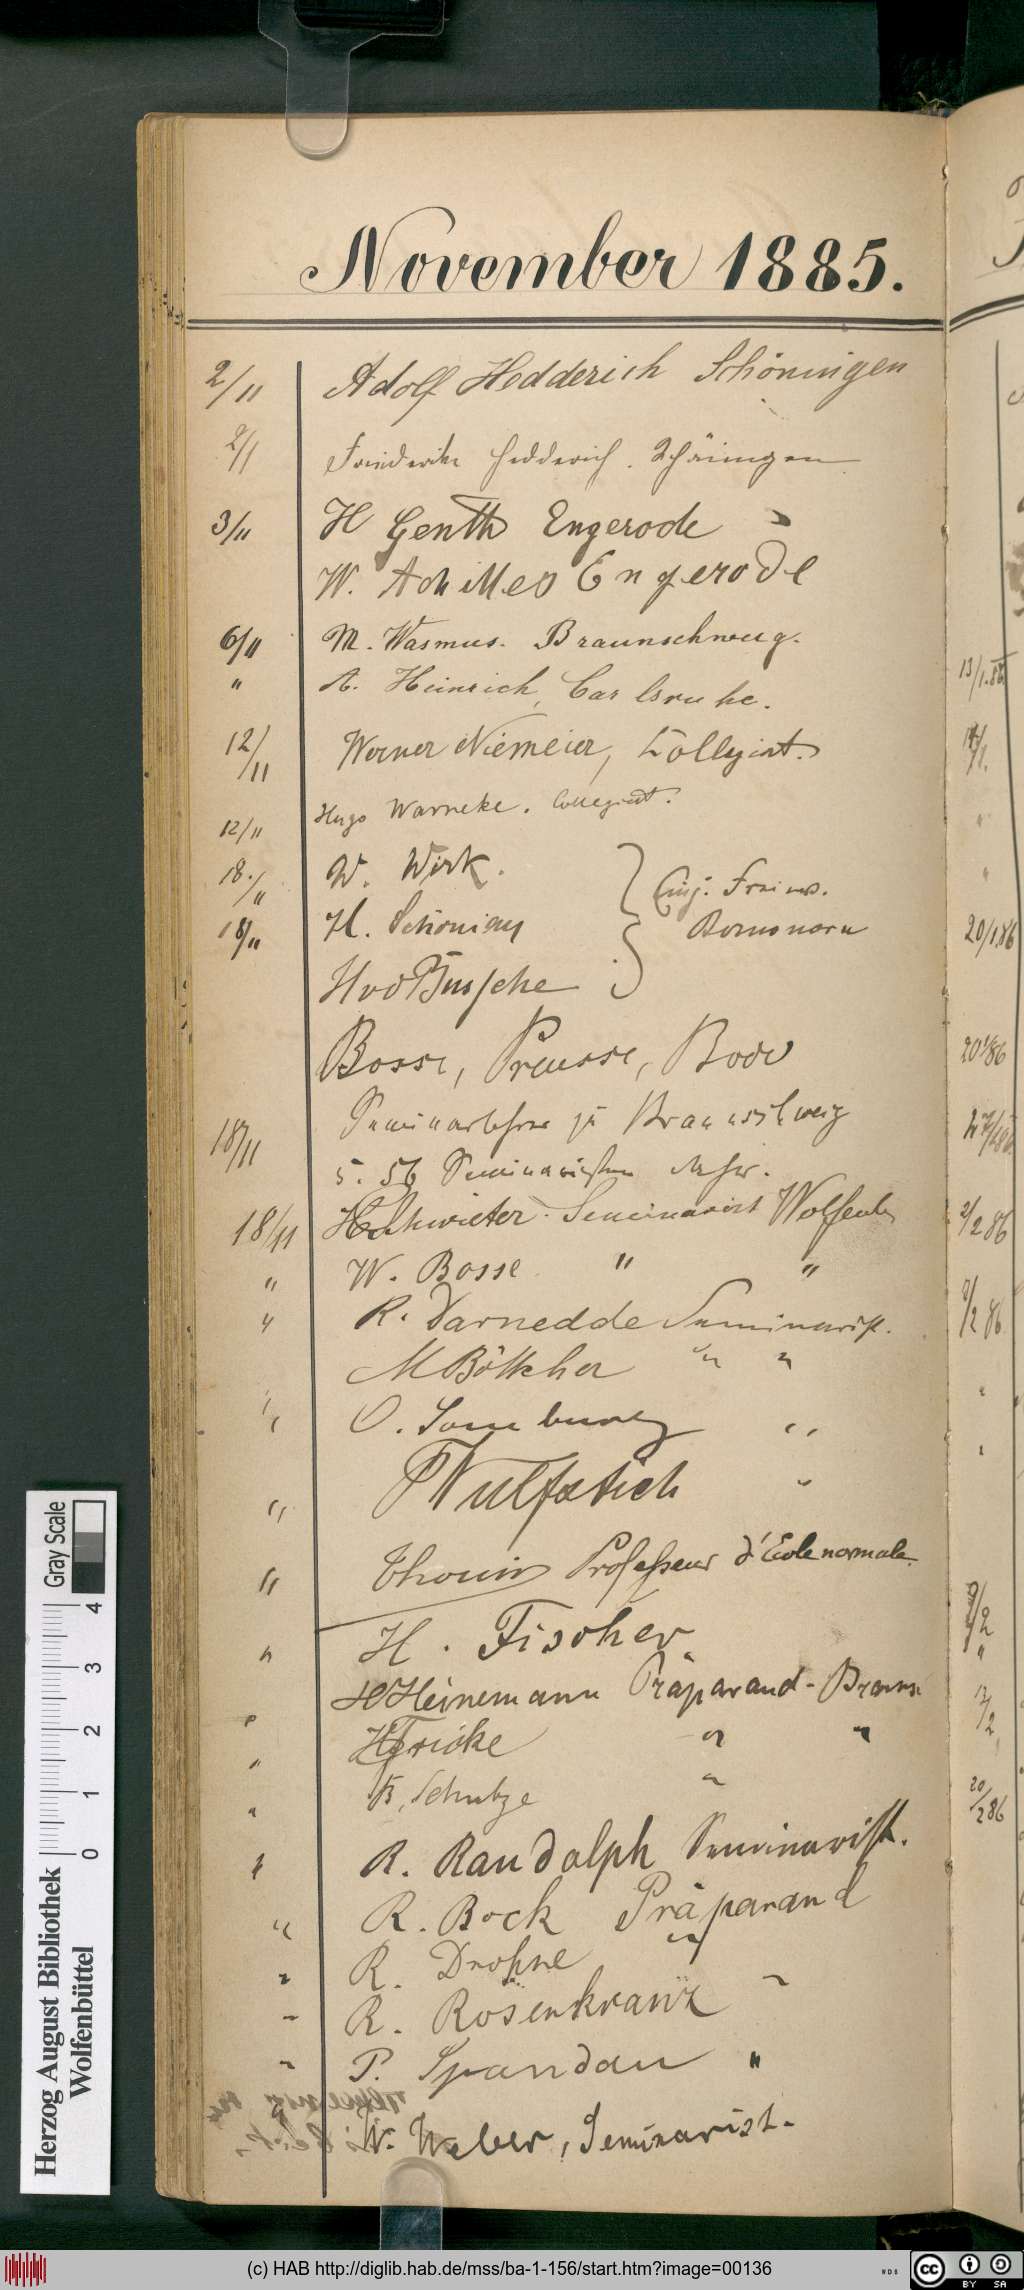 November 1885.
2/11 Adolf Hedderich Schöningen
2/11 Friederike Hedderich. Schöningen
3/11 H Genth Engerode
W. Achilles Engerode
6/11 M. Wasmus. Braunschweig.
" A. Heinrich, Carlsruhe.
12/11 Werner Niemeier, Collegiat.
12/11 Hugo Warneke. Collegiat.
18./11 W. Wirk. Einj. Freiw.
18/11 H. Schöniany
HvdBussche
Bosse, Preusse, Bode
18/11 Seminarlehrer zu Braunschweig
56 Seminaristen
18/11 Seminarist Wolfenb
" W. Bosse " "
" R. Darnedde Seminarist.
M Böttcher " "
" O. Sonnenburg "
" Wulfstich "
" Thouin Professeur d'Ecole normale
" H. Fischer
" H Heinemann Präparand - Brauns
" H Fricke " "
" B. Schulze "
" R. Randolph Seminarist.
" R. Bock Präparand
" R. Drohne "
" R. Rosenkranz "
" P. Spandau "
W. Weber, Seminarist.
13/1.86
14/1.
"
"
20/1.86
20/1 86
2/2 86
"
"
9/2
"
12/2
20/2 86
Gray Scale
0 1 2 3 4
Herzog August Bibliothek
Wolfenbüttel
(c) HAB http://diglib.hab.de/mss/ba-1-156/start.htm?image=00136
WDB
cc BY SA